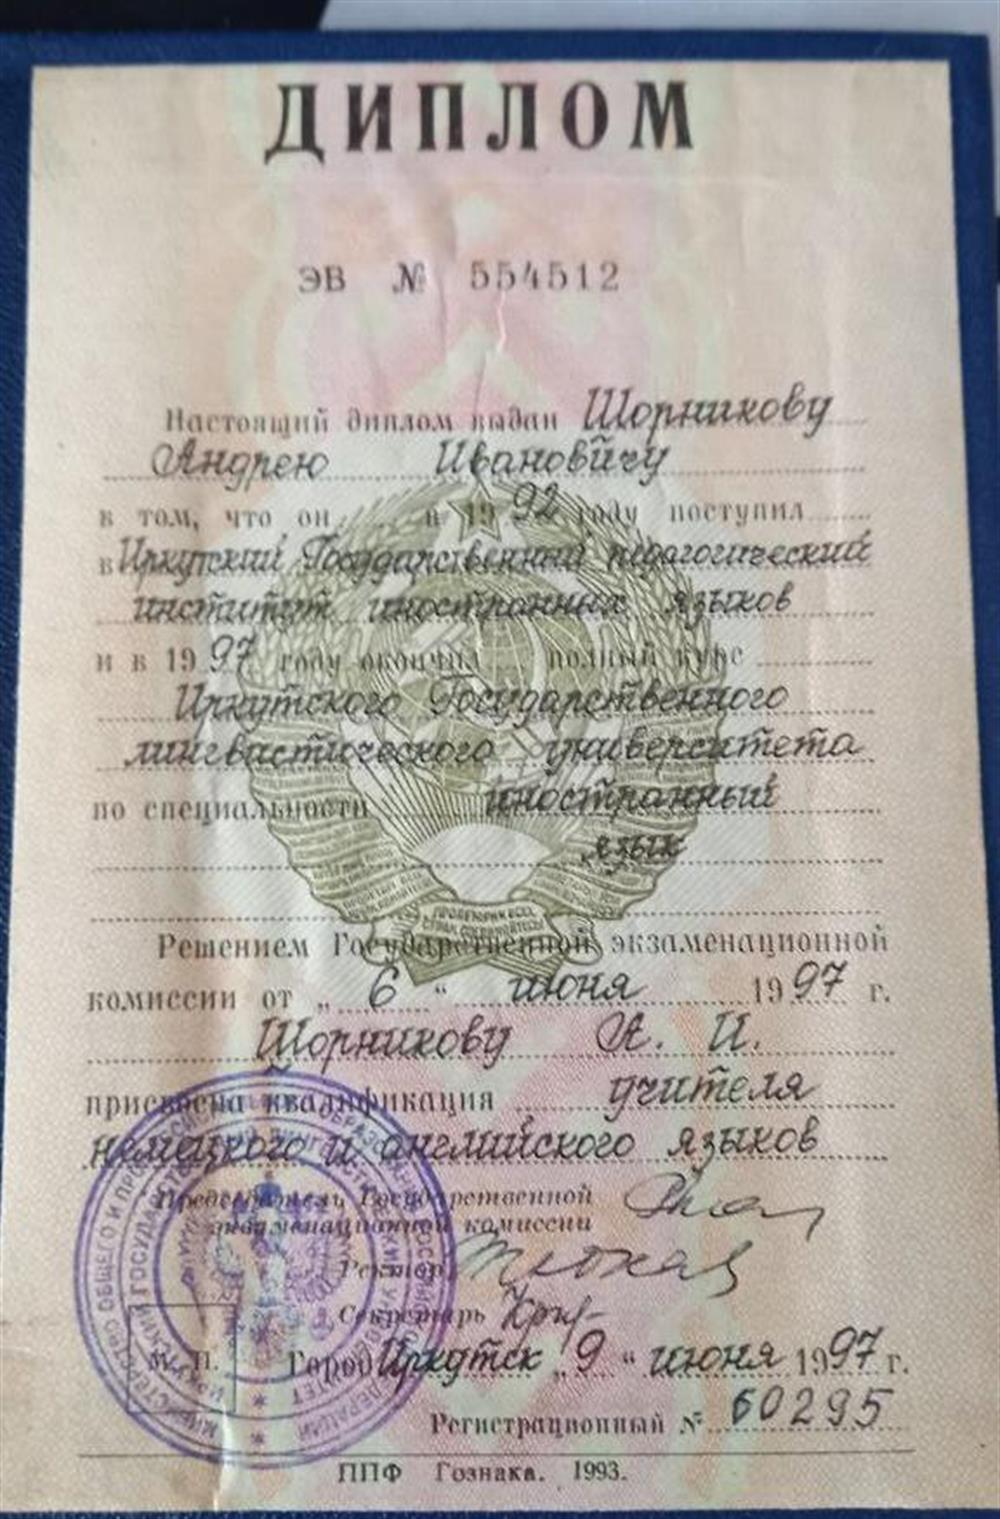 ДИПЛОМ
ЭВ № 554512
Настоящий диплом выдан Шорникову
Андрею Ивановичу
в том, что он в 1992 году поступил
в Иркутский Государственный педагогический
институт иностранных языков
и в 1997 году окончил полный курс
Иркутского Государственного
лингвистического университета
по специальности иностранный
язык
Решением Государственной экзаменационной
комиссии от „6“ июня 1997 г.
Шорникову А. И.
присвоена квалификация учителя
немецкого и английского языков
Председатель Государственной
экзаменационной комиссии
Ректор
Секретарь
М. П.
Город Иркутск „9“ июня 1997 г.
Регистрационный № 60295
ППФ Гознака. 1993.